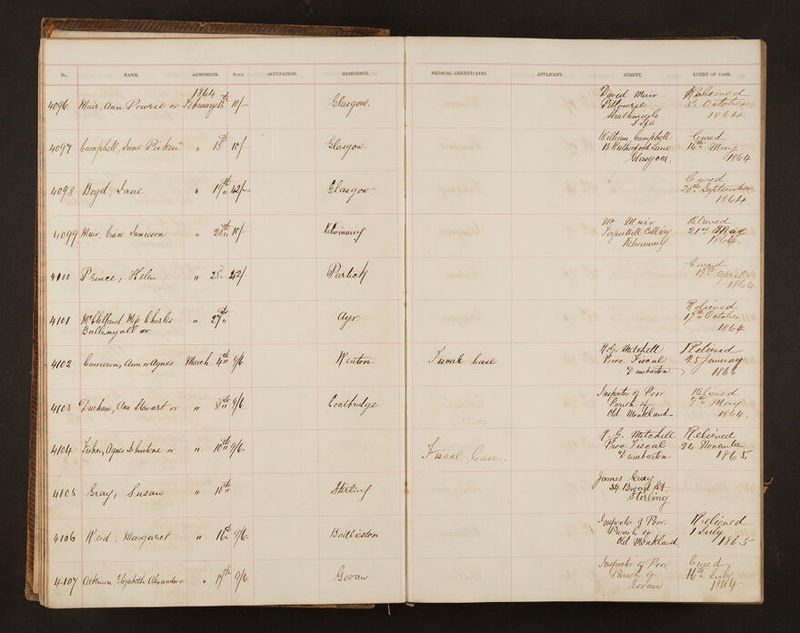 No. NAME. ADMISSION. RATE. OCCUPATION. RESIDENCE. MEDICAL CERTIFICATES. APPLICANT. SURETY. EVENT OF CASE.
1864
4096 Muir, Ann or February 15th Glasgow. David Muir Relieved
5th October
Strathmiglo 1864
Fife
4097 Campbell, Jane " 18th 10/- Glasgow William Campbell Cured
Rutherford Lane 16th May
Glasgow 1864
4098 Boyd, Jane " 19th 42/- Glasgow Cured
20th September
1864
4099 Muir, Jamieson " 20th Kilwinning Mr Muir Relieved
Colliery 21st May
Kilwinning 1864
4100 Prince, Helen " 25 42/ Partick Cured
April
1864
4101 Charles " 27th Ayr Relieved
Ballingall or 17th October
1864
4102 Cameron, Ann or Agnes March 4th 9/6 Renton Fiscal Case Mitchell Relieved
Proc. Fiscal 25 January
Dumbarton
4103 Durham, Ann Stewart or " 8th 9/6 Coatbridge Inspector of Poor Relieved
Parish of May
Old Monkland 1864
4104 Fisher, Agnes Johnstone or " 10th 9/6 Fiscal Case. Mitchell Relieved
Proc. Fiscal 24 November
Dumbarton 1865
4105 Gray, Susan " 10th Stirling James Gray
34 Broad St.
Stirling
4106 Reid, Margaret " 16th 9/6 Baillieston Inspector of Poor Relieved
Parish of 1 July
Old Monkland 1865
4107 Elizabeth Alexander or " 17th 9/6 Govan Inspector of Poor Cured
Parish of 16th July
Govan 1864